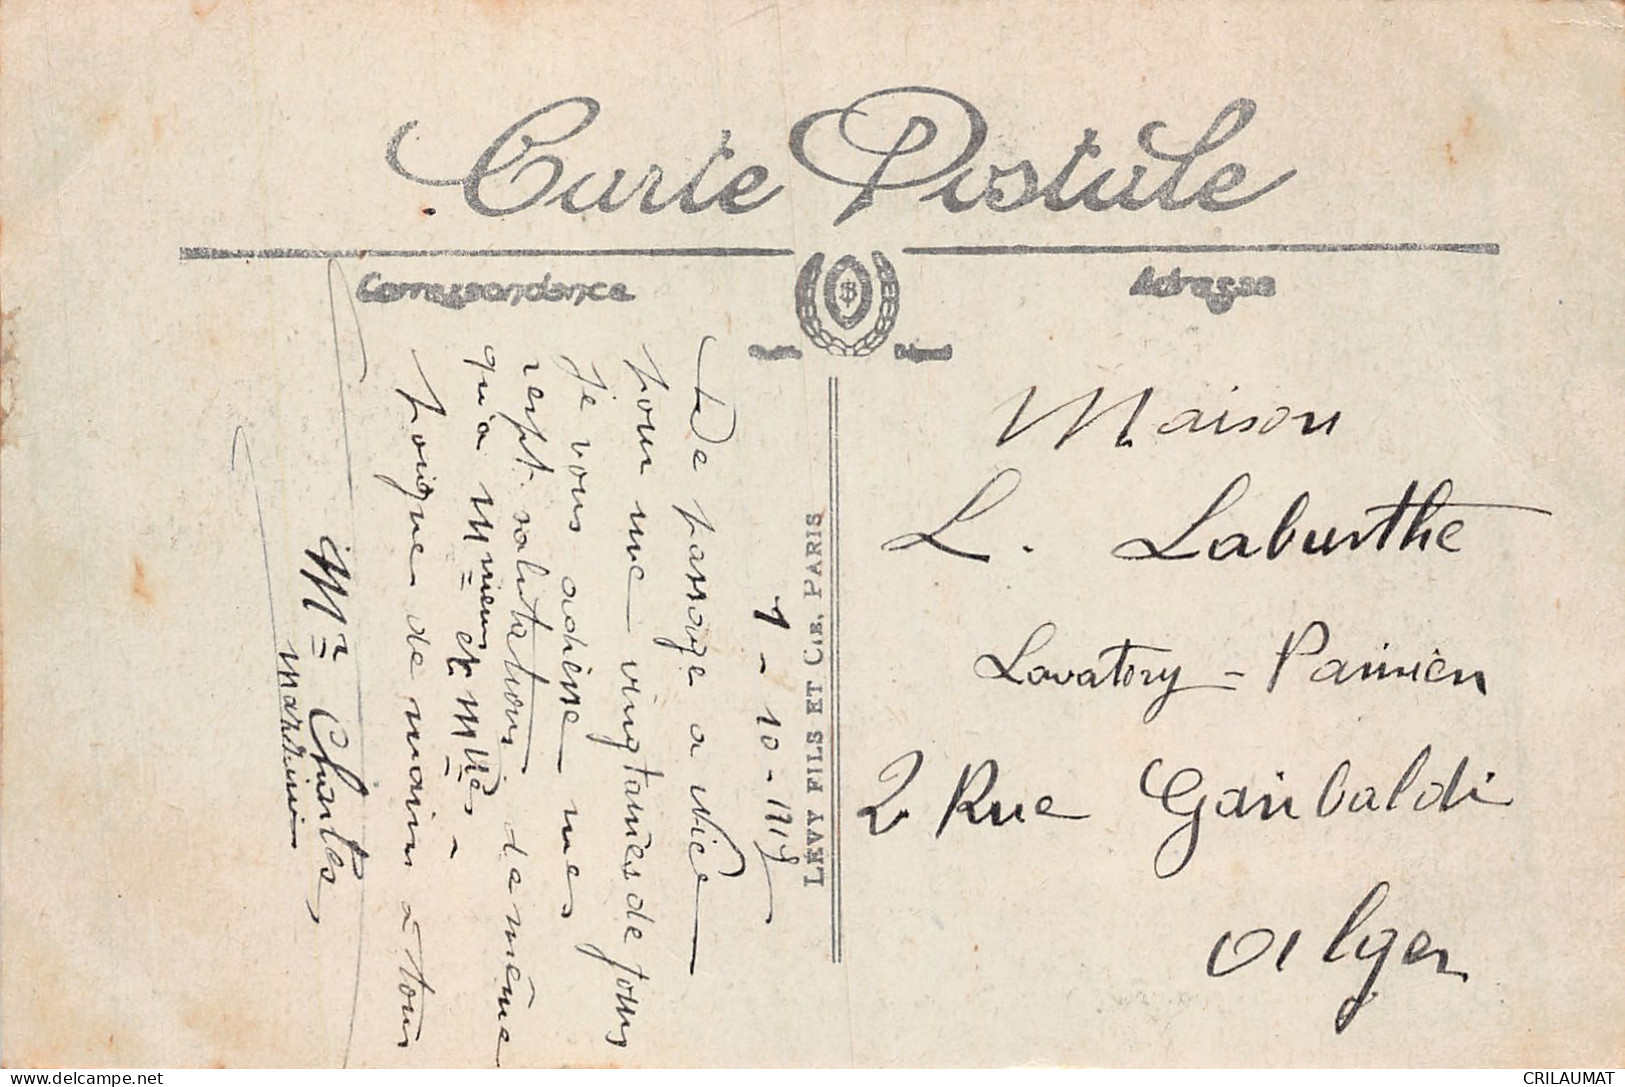 Carte Postale
Correspondance
Adresse
LEVY FILS ET CIE, PARIS
1-10-1919
De passage a Nice
pour une vingtaines de jours
Je vous adresse mes
resp.t salutations de même
qu'a M mieur et Mme -
poigne de main à tous
Mr Charles
Maison
L. Laburthe
Lavatory - Parisien
2 Rue Garibaldi
Alger
delcampe.net
CRILAUMAT